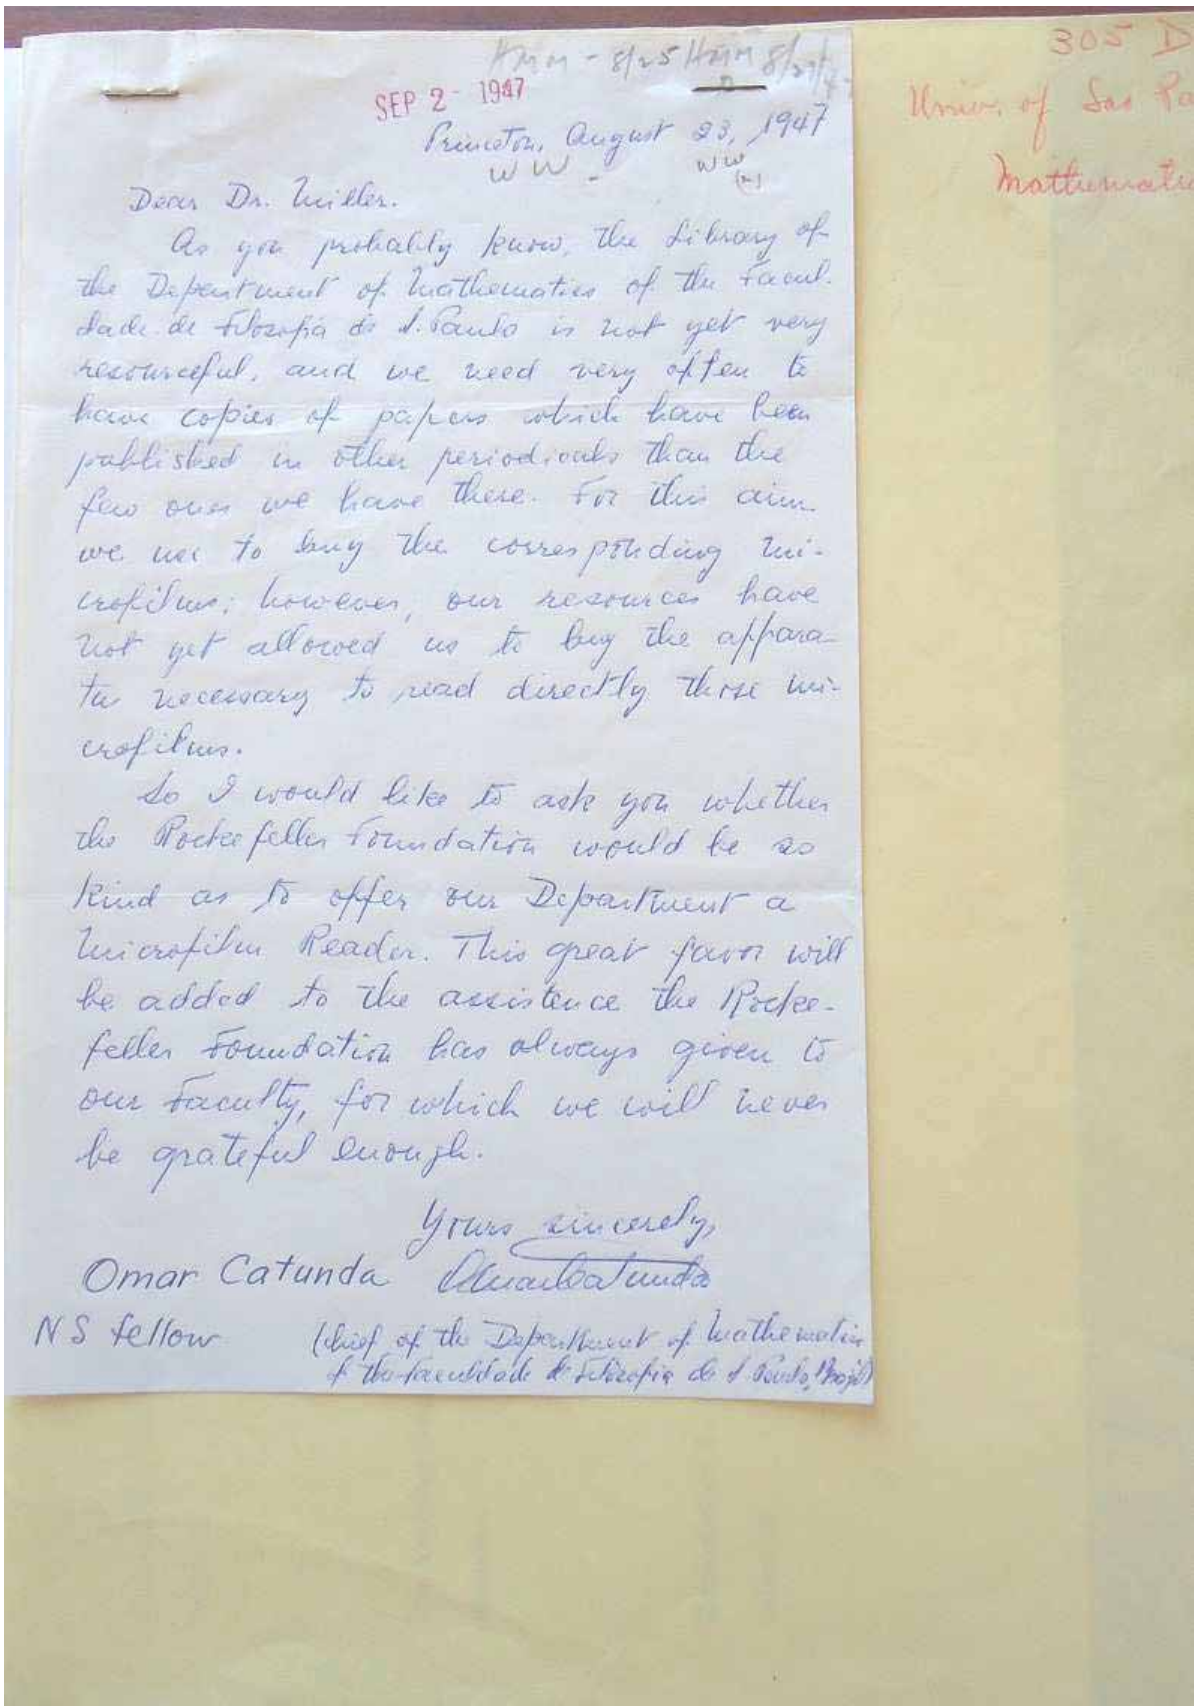 HMM - 8/25 HMM 8/27/47
305 D
SEP 2 - 1947
Univ. of Sao Pa
Princeton, August 23, 1947
WW WW
Mathematic
Dear Dr. Miller.
As you probably know, the Library of
the Department of Mathematics of the Facul-
dade de Filosofia de S. Paulo is not yet very
resourceful, and we need very often to
have copies of papers which have been
published in other periodicals than the
few ones we have there. For this aim
we use to buy the corresponding mi-
crofilms; however, our resources have
not yet allowed us to buy the appara-
tus necessary to read directly those mi-
crofilms.
So I would like to ask you whether
the Rockefeller Foundation would be so
kind as to offer our Department a
Microfilm Reader. This great favor will
be added to the assistence the Rocke-
feller Foundation has always given to
our Faculty, for which we will never
be grateful enough.
Yours sincerely,
Omar Catunda Omar Catunda
NS fellow (chief of the Department of Mathematics
of the Faculdade de Filosofia de S. Paulo, Brazil)